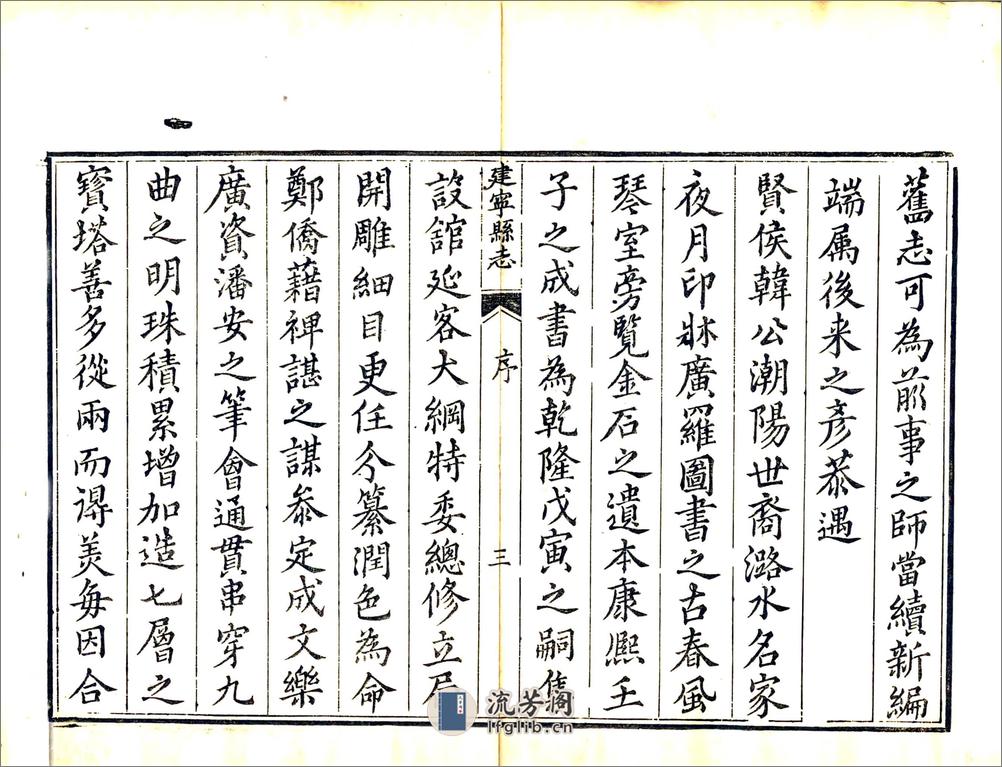 舊志可為前事之師當續新編
端属後来之彥恭遇
賢侯韓公潮陽世裔潞水名家
夜月印牀廣羅圖書之古春風
琴室旁覽金石之遺本康熙壬
子之成書為乾隆戊寅之嗣集
建寧縣志 序 三
設舘延客大綱特委總修立局
開雕細目更任分纂潤色為命
鄭僑藉裨諶之謀叅定成文樂
廣資潘安之筆會通貫串穿九
曲之明珠積累增加造七層之
寳塔善多從兩而得美每因合
流芳阁
lfglib.cn